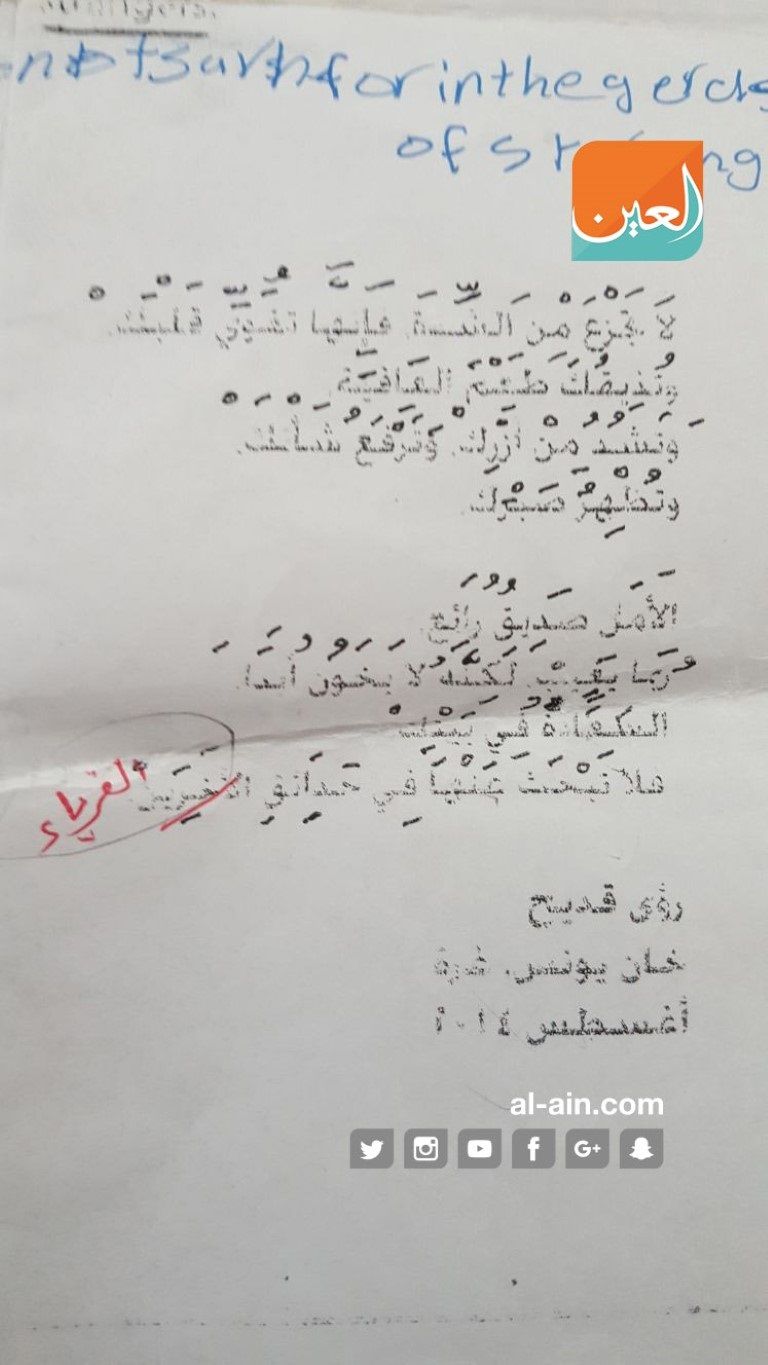 not surh for in the gerds
of
العين
لَا تَجْزَعْ مِنَ الشِّدَّةِ، فَإِنَّهَا تُقَوِّي قَلْبَكَ.
وَتُذِيقُكَ طَعْمَ العَافِيَةِ
وَتَشُدُّ مِنْ أَزْرِكْ، وَتَرْفَعُ شَأْنَكَ.
وَتُظْهِرُ صَبْرَكَ.
الأَمَلُ صَدِيقٌ رَائِعٌ
رُبَّمَا يَغِيبُ، لَكِنَّهُ لَا يَخُونُ أَبَدًا.
السَّعَادَةُ فِي بَيْتِكَ
فَلَا تَبْحَثْ عَنْهَا فِي حَدَائِقِ
الغرباء
رؤى قديح
خان يونس، غزة
أغسطس ٢٠١٤
al-ain.com